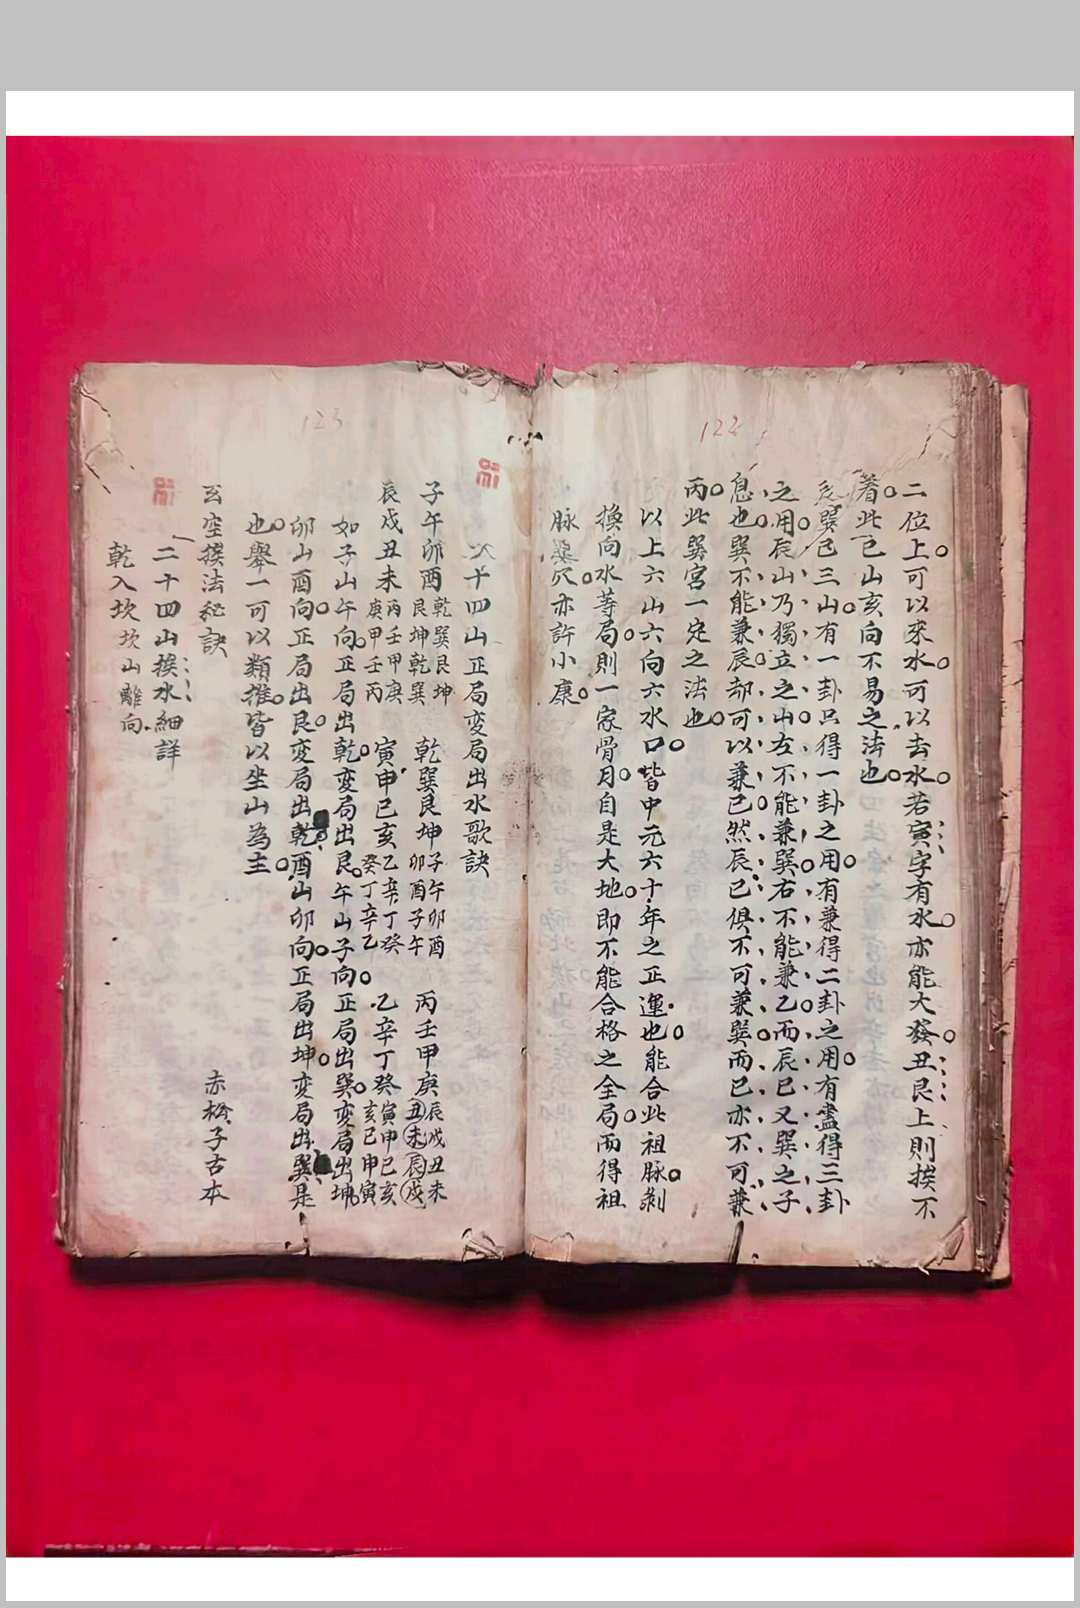 122
二位上可以來水可以去水若寅字有水亦能大發丑艮上則挨不
着此巳山亥向不易之法也
亥巽巳三山有一卦只得一卦之用有兼得二卦之用有盡得三卦
之用辰山乃獨立之山左不能兼巽右不能兼乙而辰巳又巽之子
息也巽不能兼辰却可以兼巳然辰巳俱不可兼巽而巳亦不可兼
丙此巽宮一定之法也
以上六山六向六水口皆中元六十年之正運也能合此祖脉剝
換向水等局則一家骨月自是大地即不能合格之全局而得祖
脉巽穴亦許小康
123
二十四山正局変局出水歌訣
子午卯酉乾巽艮坤艮坤乾巽 乾巽艮坤子午卯酉卯酉子午 丙壬甲庚辰戌丑未丑未辰戌
辰戌丑未丙壬甲庚庚甲壬丙 寅申巳亥乙辛丁癸癸丁辛乙 乙辛丁癸寅申巳亥亥巳申寅
如子山午向正局出乾変局出艮午山子向正局出巽変局出坤
卯山酉向正局出艮変局出乾酉山卯向正局出坤変局出巽是
也舉一可以類推皆以坐山為主
玄空挨法秘訣 赤松子古本
二十四山挨水細詳
乾入坎坎山離向